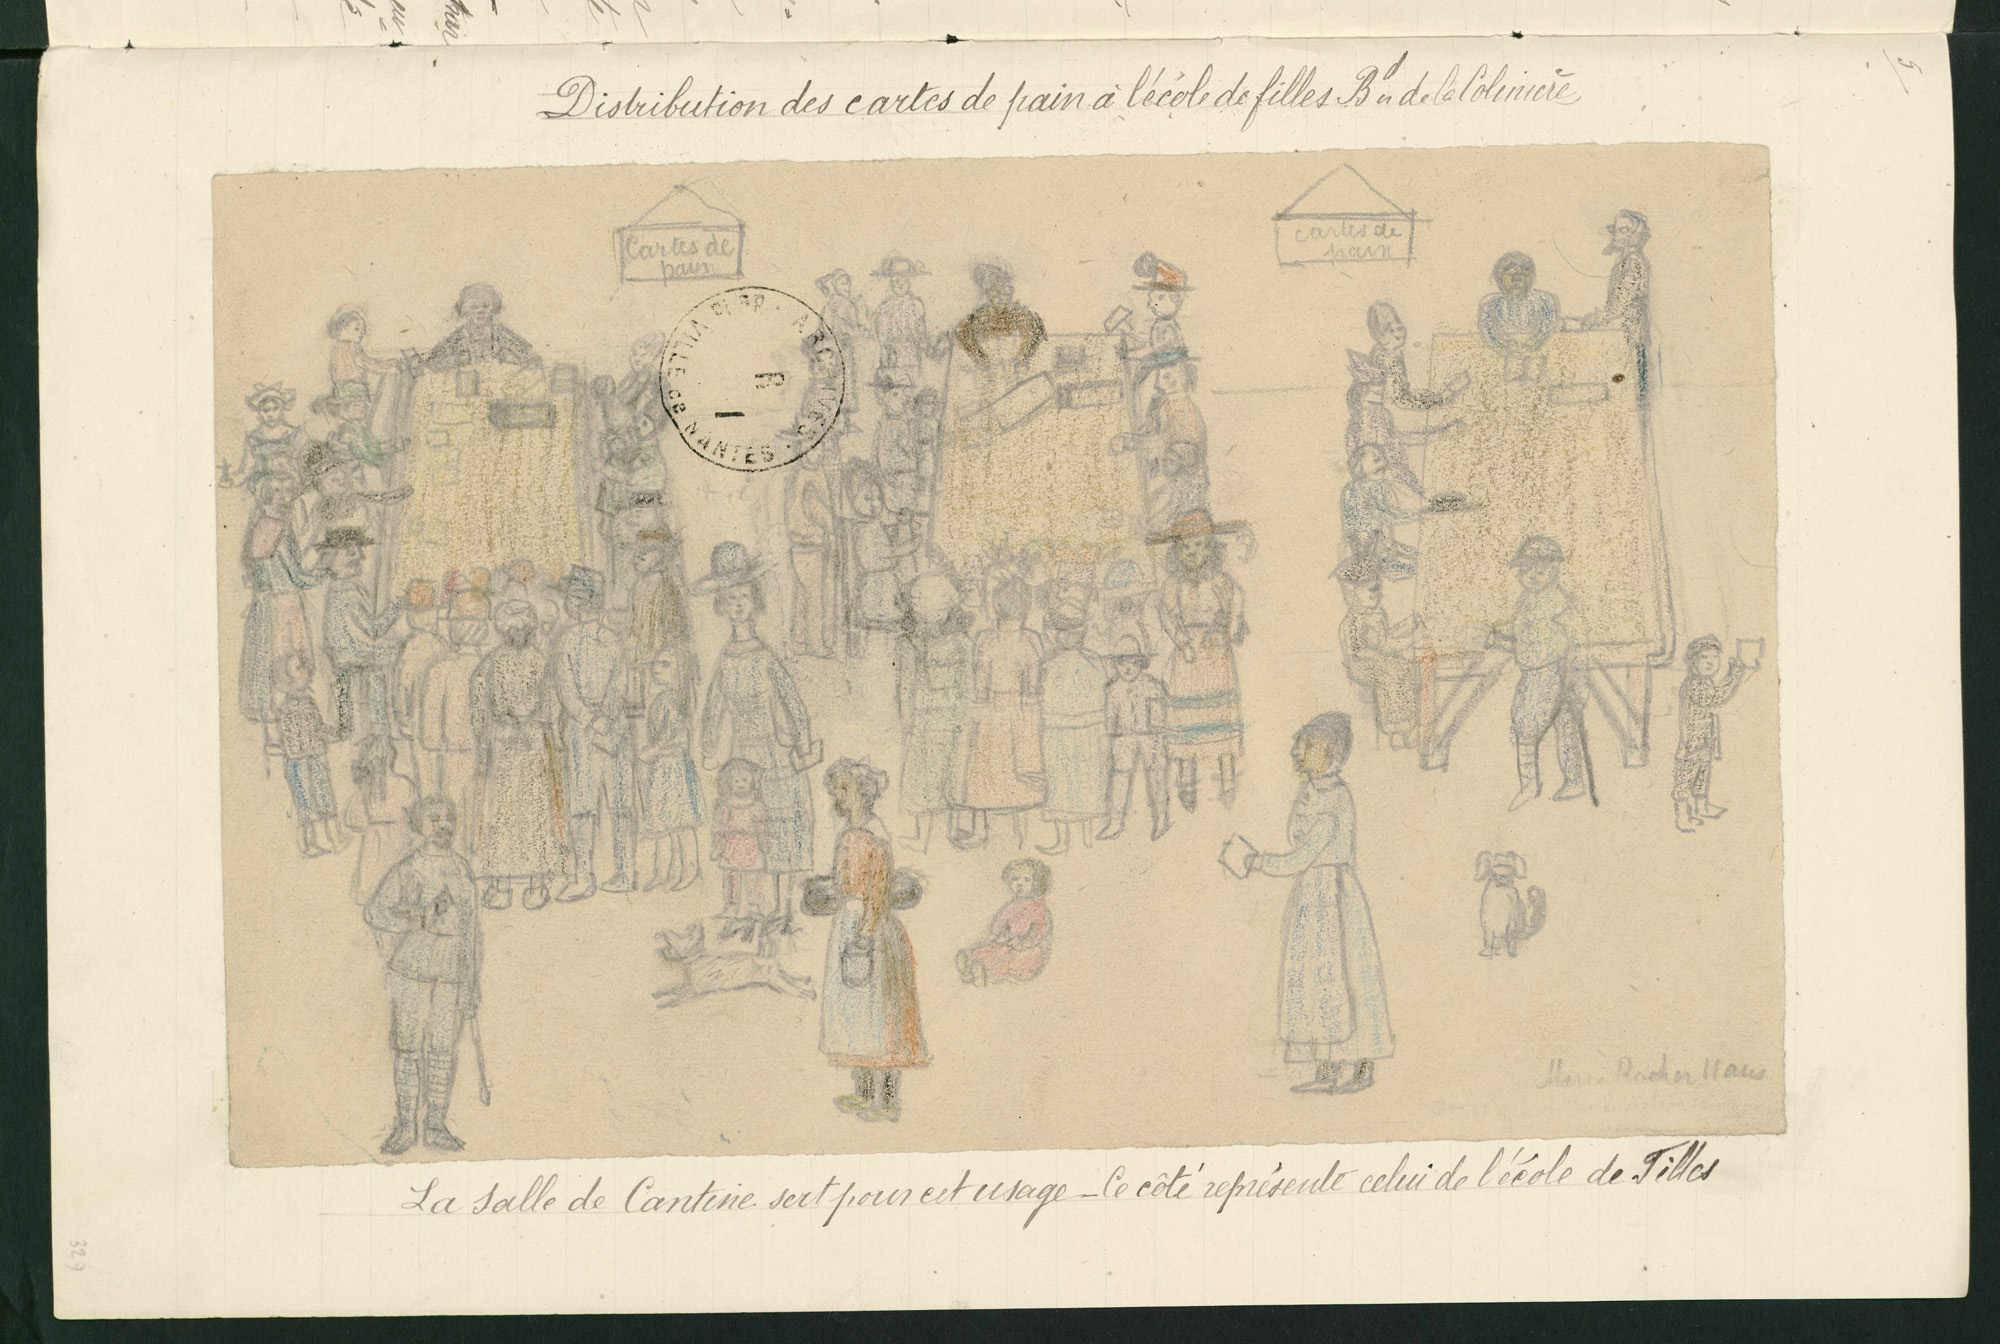 5
Distribution des cartes de pain à l'école de filles Bd de la Colinière
Cartes de
pain
cartes de
pain
ARCHIVES
de la VILLE de NANTES
R
1
La salle de Cantine sert pour cet usage _ Ce côté représente celui de l'école de Filles
329